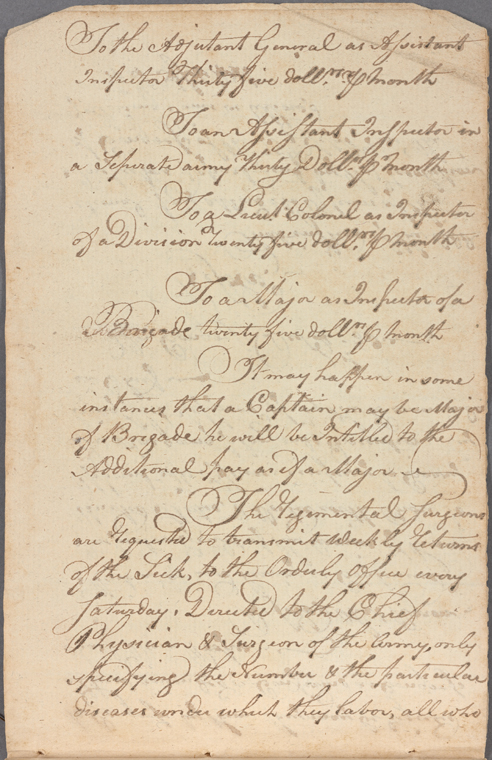 To the Adjutant General as Assistant
Inspector Thirty five doll.rs ⅌ month
To an Assistant Inspector in
a Seperate army thirty Doll.rs ⅌ month
To a Lieut Colonel as Inspector
of a Division twenty five doll.rs ⅌ month
To a Major as Inspector of a
Brigade twenty five doll.rs ⅌ month
It may happen in some
instances that a Captain may be Major
of Brigade he will be Intitled to the
Additional pay as of a Major
The Regimental Surgeons
are Requested to transmit weekly Returns
of the Sick, to the Orderly office every
Saturday. Directed to the Chief
Physician & Surgeon of the Army, only
specifying the Number & the particular
diseases under which they labor, all who